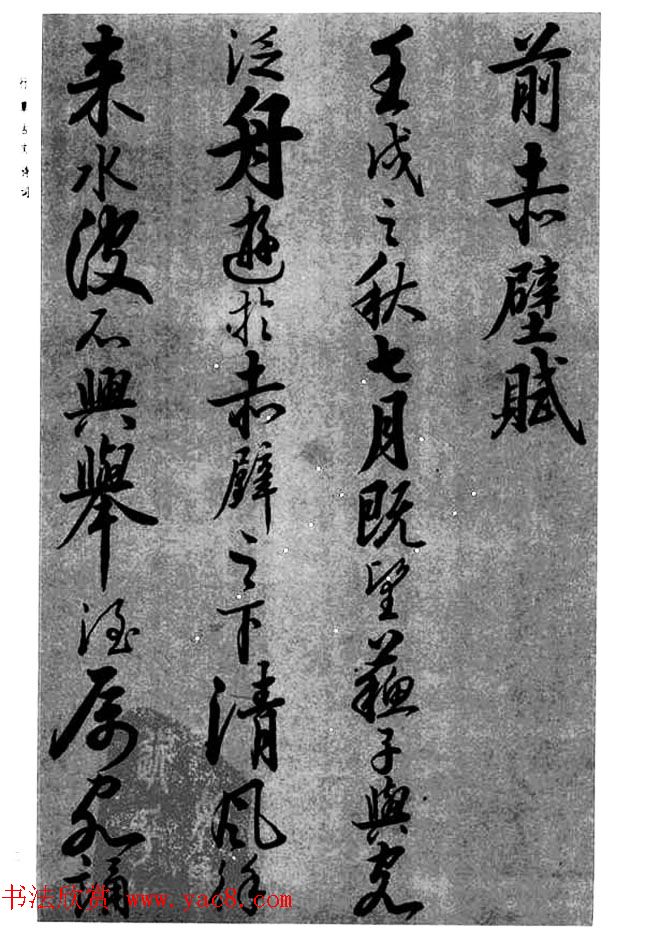 前赤壁賦
壬戌之秋七月既望蘇子與客
泛舟遊於赤壁之下清風徐
来水波不興舉酒属客誦
书法欣赏 www.yac8.com